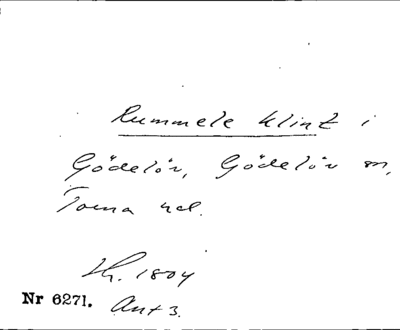 Rummele klint i
Gödelöv, Gödelöv sn,
Torna hd.
1804
Nr 6271. Ant 3.